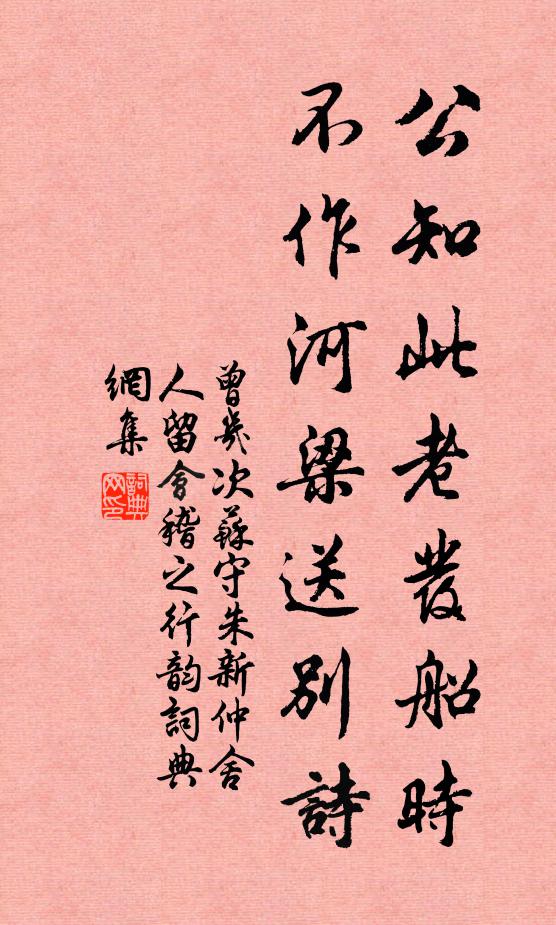 公知此老發船時
不作河梁送別詩
曾幾次蘇守朱新仲舍
人留會稽之行韵詞典
網集
詞典
网印